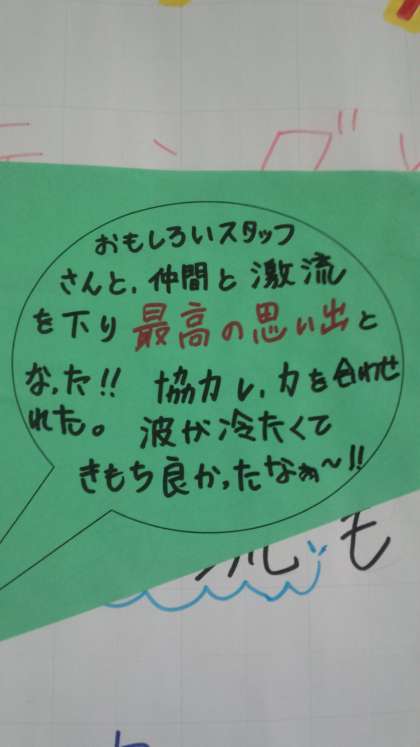 おもしろいスタッフ
さんと、仲間と激流
を下り最高の思い出と
なった!! 協力し、力を合わせ
れた。 波が冷たくて
きもち良かったなぁ〜!!
流
も